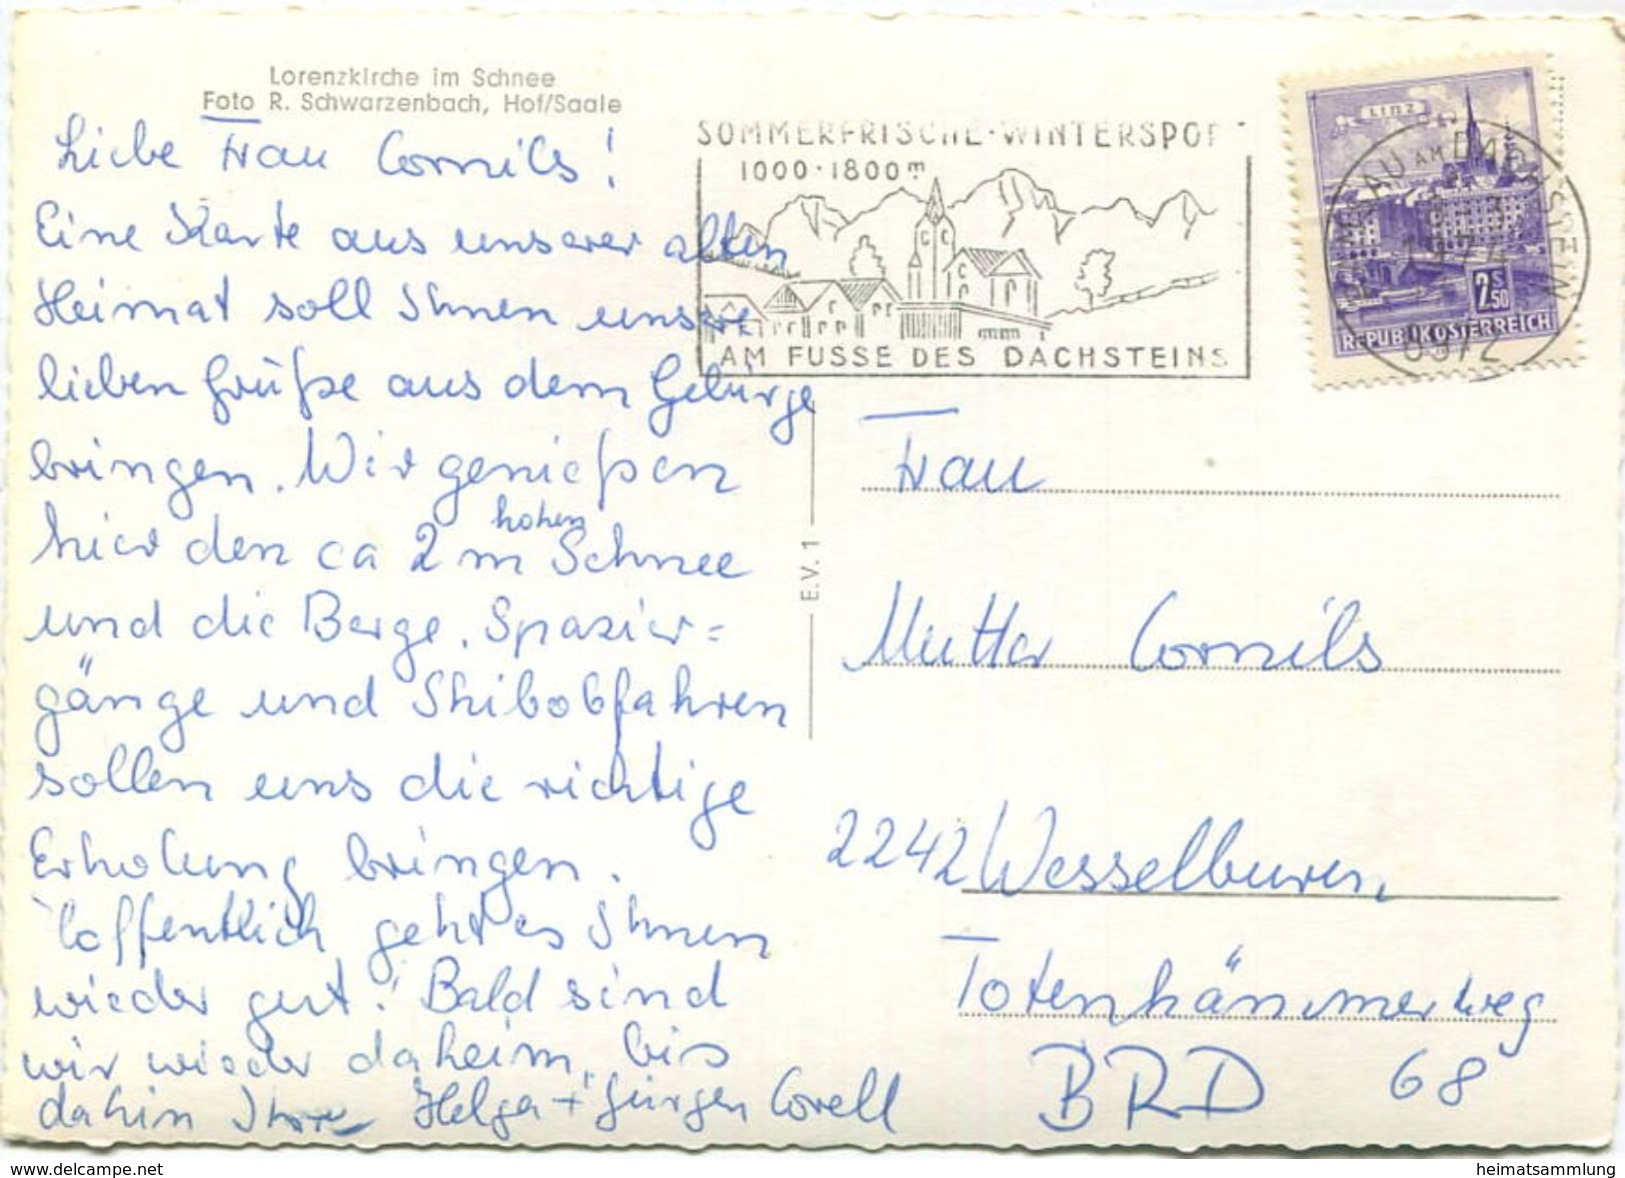 Lorenzkirche im Schnee
Foto R. Schwarzenbach, Hof/Saale
Liebe Frau Cornils!
Eine Karte aus unserer alten
Heimat soll Ihnen unsere
lieben Grüße aus dem Gebirge
bringen. Wir genießen
hier den ca 2 m hohen Schnee
und die Berge. Spazier=
gänge und Skibobfahren
sollen uns die richtige
Erholung bringen.
Hoffentlich geht es Ihnen
wieder gut! Bald sind
wir wieder daheim, bis
dahin Ihre Helga + Jürgen Corell
SOMMERFRISCHE·WINTERSPOR
1000·1800m
AM FUSSE DES DACHSTEINS
LINZ
2S50
REPUBLIK ÖSTERREICH
RAMSAU AM DACHSTEIN
1974
8972
E.V. 1
Frau
Mutter Cornils
2242 Wesselburen,
Totenhämmerweg
BRD 68
www.delcampe.net
heimatsammlung